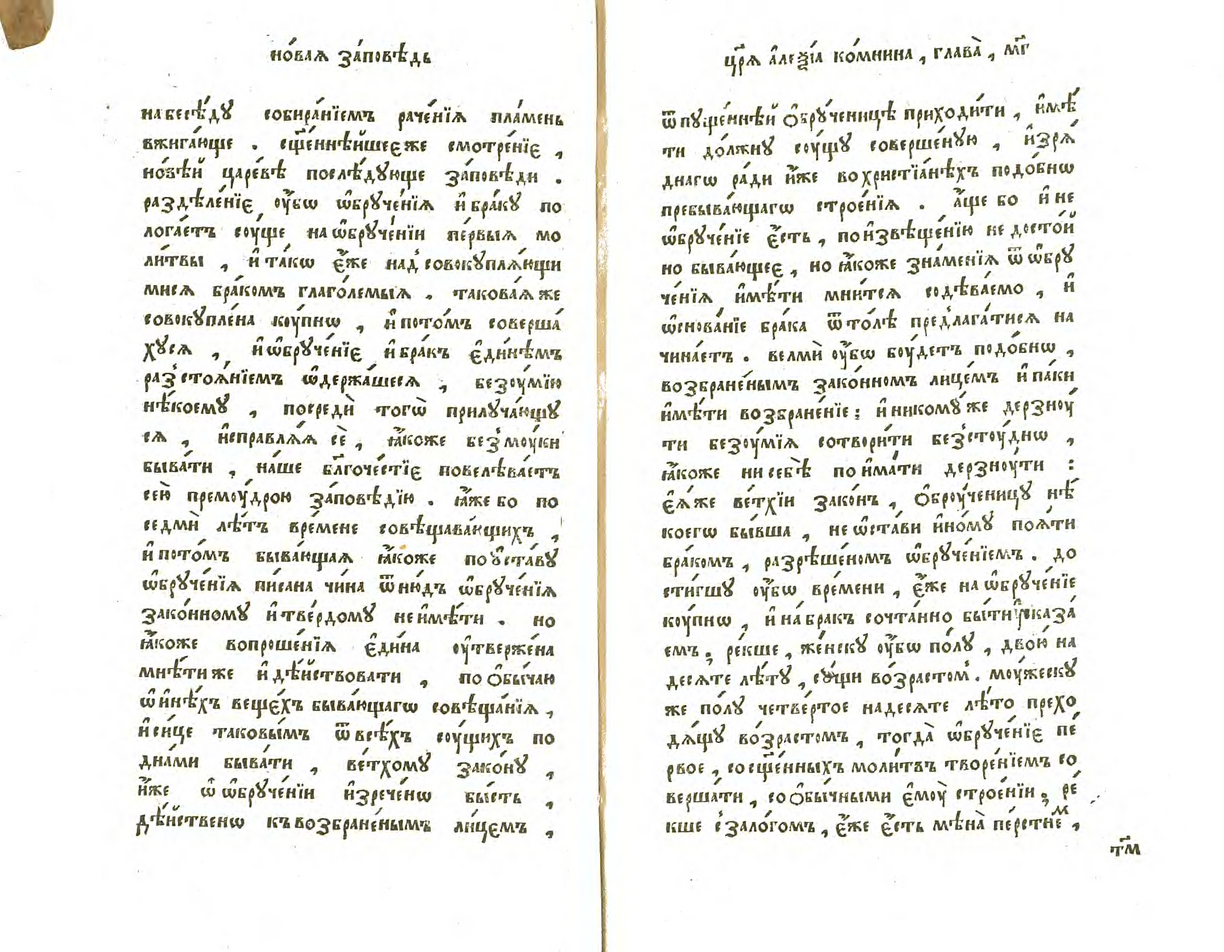 но́ваѧ за́повѣдь
на бесѣ́дꙋ собира́нїемъ раче́нїѧ пла́мень
вжига́юще . сщ҃е́ннѣйшееже смотре́нїе ,
но́вѣй царе́вѣ послѣ́дꙋюще за́повѣди .
раздѣле́нїе ᲂу҆́бѡ ѡ҆брꙋче́нїѧ и҆ бра́кꙋ по
лога́етъ сꙋ́ще на ѡ҆брꙋче́нїи пе́рвыѧ мо
ли́твы , и҆ та́кѡ є҆́же над̾ совокꙋплѧ́ющи
мисѧ бра́комъ глаго́лемыѧ . такова́ѧ же
совокꙋпле́на кꙋ́пнѡ , и҆ пото́мъ соверша́
хꙋсѧ , и҆ ѡ҆брꙋче́нїе и҆ бра́къ є҆ди́нѣмъ
раз̾стоѧ́нїемъ ѡ҆держа́шесѧ , безꙋ́мїю
нѣ́коемꙋ , посредѝ тогѡ̀ прилꙋча́ющꙋ
сѧ , и҆справлѧ́ѧ сѐ , ꙗ҆́коже без̾ мꙋ́ки
быва́ти , на́ше бл҃гоче́стїе повелѣва́етъ
се́ю премꙋ́дрою за́повѣдїю . ꙗ҆́же бо по
седмѝ лѣ́тъ вре́мене совѣщава́ющихъ ,
и҆ пото́мъ быва́ющаѧ ꙗ҆́коже по ᲂу҆ста́вꙋ
ѡ҆брꙋче́нїѧ пи́сана чи́на ѿню́дъ ѡ҆брꙋче́нїѧ
зако́нномꙋ и҆ тве́рдомꙋ не и҆мѣ́ти . но
ꙗ҆́коже вопроше́нїѧ є҆ди́на ᲂу҆тверже́на
мнѣ́ти же и҆ дѣ́йствовати , по ѻ҆бы́чаю
ѿ и҆нѣ́хъ веще́хъ быва́ющагѡ совѣща́нїѧ ,
и҆ си́це таковы́мъ ѿ всѣ́хъ сꙋ́щихъ по
дна́ми быва́ти , ве́тхомꙋ зако́нꙋ ,
и҆́же ѡ҆ ѡ҆брꙋче́нїи и҆зрече́нѡ бы́сть ,
дѣ́йственѡ къ возбране́нымъ ли́цемъ ,
цр҃ѧ̀ а҆леѯі́а комнина , глава̀ , мг҃
ѿпꙋще́ннѣй ѻ҆брꙋ́ченицѣ приходи́ти , и҆мѣ́
ти до́лжнꙋ сꙋ́щꙋ соверше́нꙋю , и҆зрѧ́
днагѡ ра́ди и҆́же во христїа́нѣхъ подо́бнѡ
пребыва́ющагѡ строе́нїѧ . а҆́ще бо и҆ не
ѡ҆брꙋче́нїе є҆́сть , по и҆звѣще́нїю не досто́й
но быва́ющее , но ꙗ҆́коже зна́менїѧ ѿ ѡ҆брꙋ
че́нїѧ и҆мѣ́ти мни́тсѧ содѣ́ваемо , и҆
ѡ҆снова́нїе бра́ка ѿто́лѣ предлага́тисѧ на
чина́етъ . велмѝ ᲂу҆́бѡ бꙋ́детъ подо́бнѡ ,
возбране́нымъ зако́нномъ лице́мъ и҆ па́ки
и҆мѣ́ти возбране́нїе : и҆ никомꙋ́же дерзнꙋ́
ти безꙋ́мїѧ сотвори́ти без̾стꙋ́днѡ ,
ꙗ҆́коже ни себѣ̀ по и҆ма́ти дерзнꙋ́ти :
є҆ѧ́же ве́тхїи зако́нъ , ѻ҆брꙋ́ченицꙋ нѣ́
коегѡ бы́вша , не ѡ҆ста́ви и҆но́мꙋ поѧ́ти
бра́комъ , разрѣше́номъ ѡ҆брꙋче́нїемъ . до
сти́гшꙋ ᲂу҆́бѡ вре́мени , є҆́же на ѡ҆брꙋче́нїе
кꙋ́пнѡ , и҆ на бра́къ сочта́нно бы́ти ᲂу҆каза́
емъ , ре́кше , же́нскꙋ ᲂу҆́бѡ по́лꙋ , двою́ на
десѧте лѣ́тꙋ , сꙋ́щи во́зрастом̾ . мꙋ́жескꙋ
же по́лꙋ четве́ртое надесѧте лѣ́то прехо
дѧ́щꙋ во́зрастомъ , тогда̀ ѡ҆брꙋче́нїе пе́
рвое , со сщ҃е́нныхъ моли́твъ творе́нїемъ со
верша́ти , со ѻ҆бы́чными є҆мꙋ̀ строе́нїи , ре́
кше с̾ зало́гомъ , є҆́же є҆́сть мѣ́на пе́рстнемъ ,
тм҃